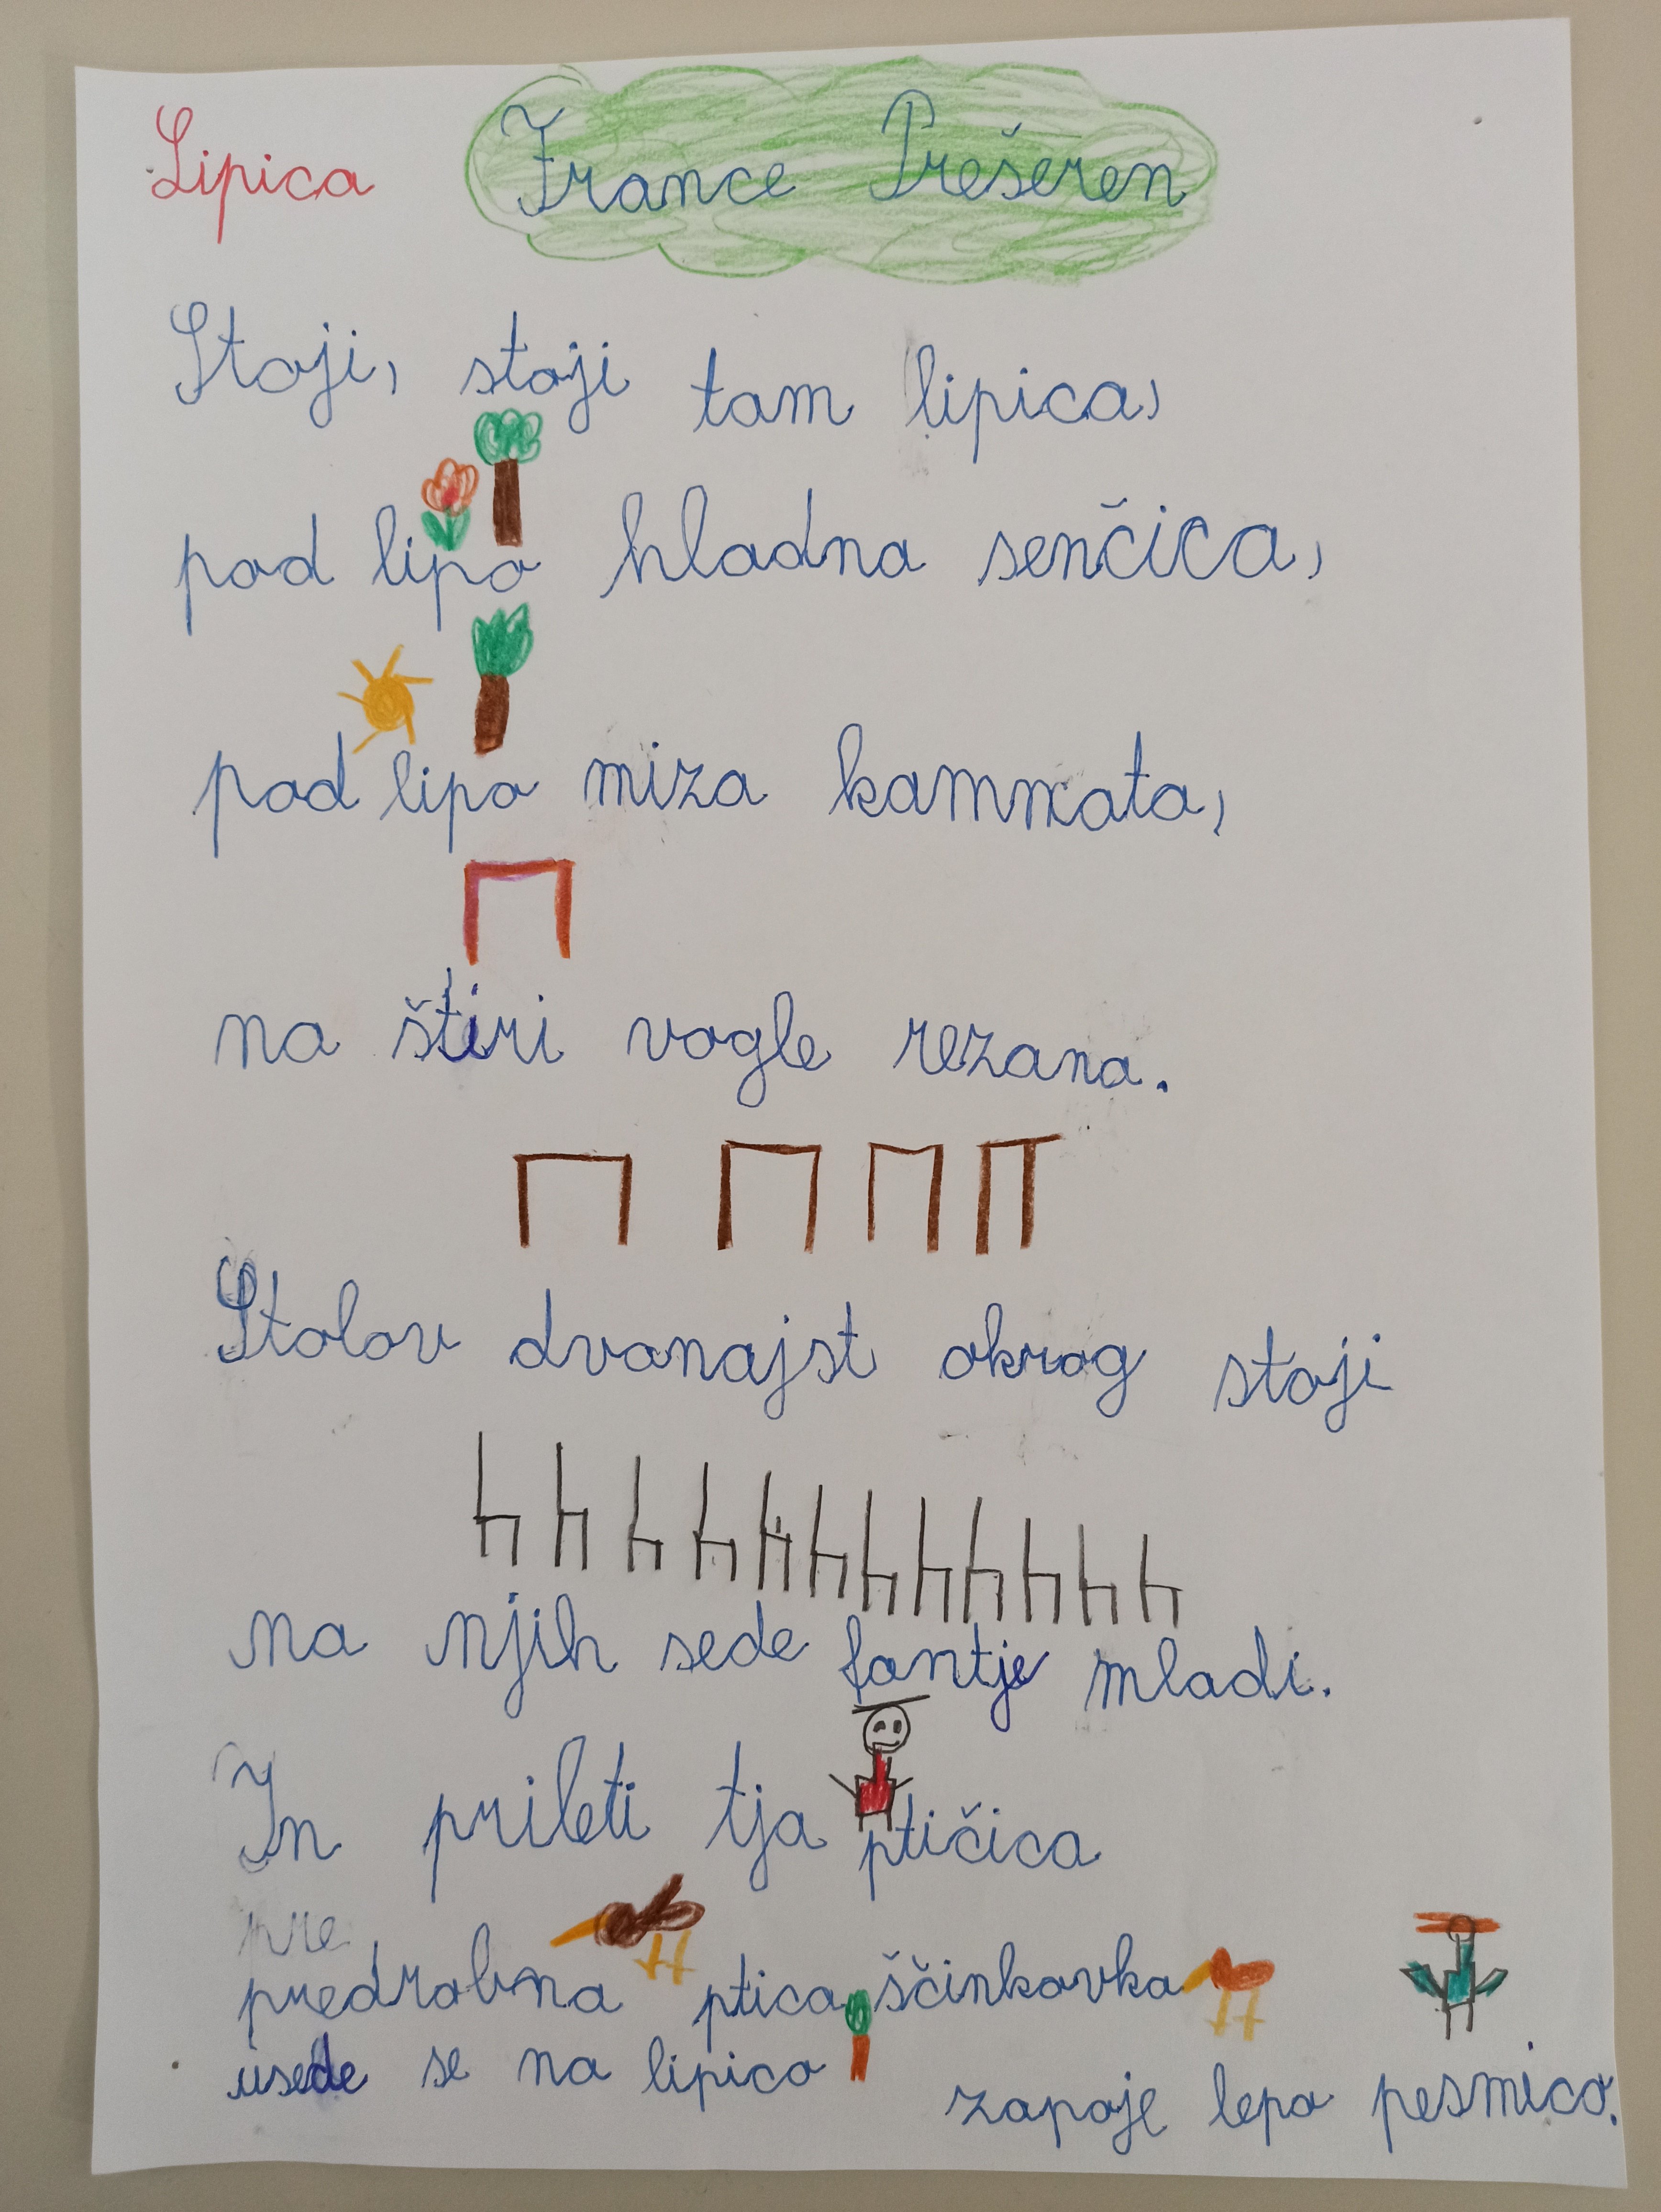 Lipica France Prešeren
Stoji, stoji tam lipica,
pod lipo hladna senčica,
pod lipo miza kamnata,
na štiri vogle rezana.
Stolov dvanajst okrog stoji
na njih sede fantje mladi.
In prileti tja ptičica
pre
predrobna ptica ščinkovka
usede se na lipico zapoje lepo pesmico.